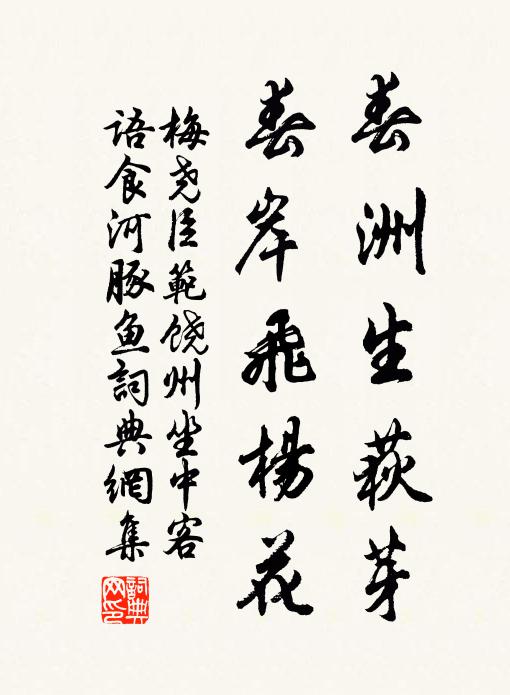 春洲生荻芽
春岸飛楊花
梅尧臣範饶州坐中客
語食河豚鱼詞典網集
詞典网印